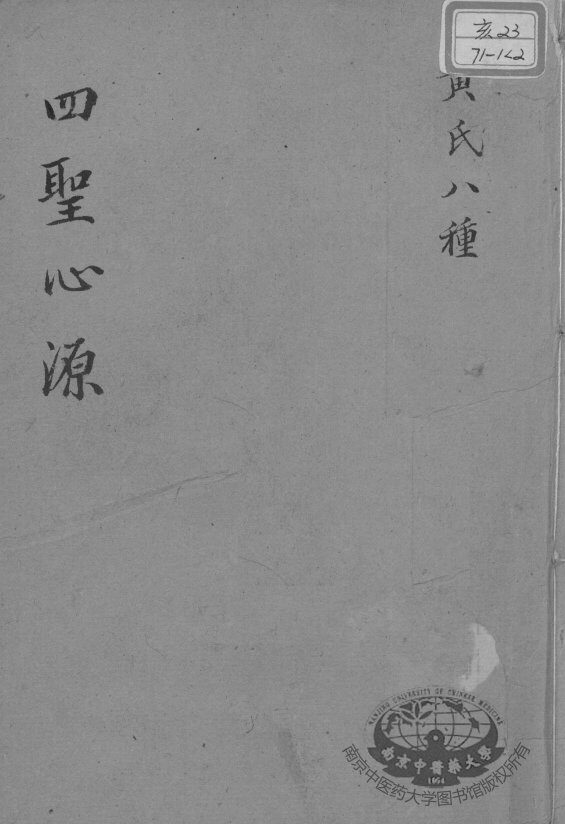 亥23
71-1<2
黄氏八種
四聖心源
NANJING UNIVERSITY OF CHINESE MEDICINE
南京中醫藥大學
1954
南京中医药大学图书馆版权所有